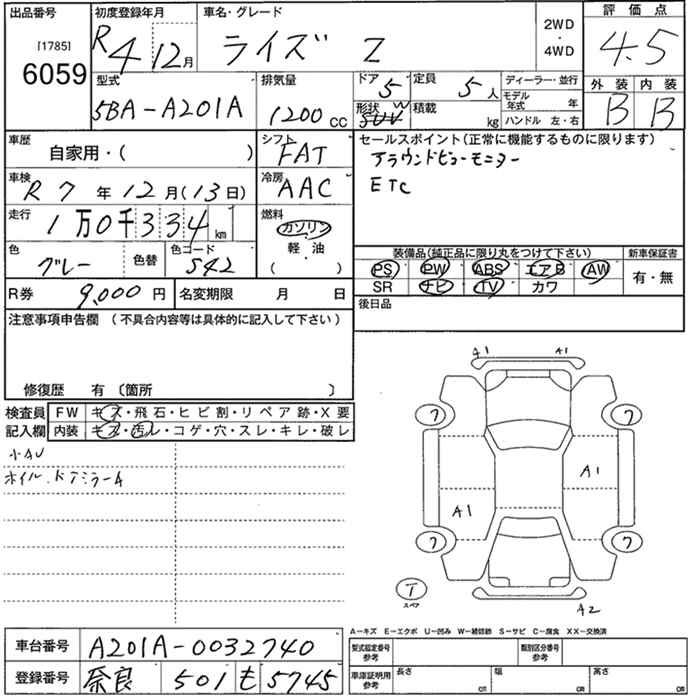 出品番号 初度登録年月 車名・グレード 2WD・4WD 評価点
[1785]
6059 R4 12月 ライズ Z 4.5
型式 排気量 ドア 5 定員 5人 ディーラー・並行 外装 内装
5BA-A201A 1200cc 形状 SUV W 積載 kg モデル年式 年 B B
ハンドル 左・右
車歴 自家用・( ) シフト FAT セールスポイント(正常に機能するものに限ります)
アラウンドビューモニター
車検 R7年12月(13日) 冷房 AAC ETC
走行 1万0千334km 燃料 ガソリン
軽・油
( )
色 グレー 色替 色コード 542 装備品(純正品に限り丸をつけて下さい) 新車保証書
PS PW ABS エアB AW 有・無
R券 9,000円 名変期限 月 日 SR ナビ TV カワ
後日品
注意事項申告欄(不具合内容等は具体的に記入して下さい)
修復歴 有〔箇所 〕
検査員 FW キズ・飛石・ヒビ割・リペア跡・X要
記入欄 内装 キズ・汚レ・コゲ・穴・スレ・キレ・破レ
小AU
ホイル、ドアミラーA
A1 A1
7 7
A1
A1
7 7
T
スペア
A2
A-キズ E-エクボ U-凹み W-補修跡 S-サビ C-腐食 XX-交換済
車台番号 A201A-0032740 型式指定番号 参考 類別区分番号 参考
登録番号 奈良 501 も 5745 車庫証明用 参考 長さ cm 幅 cm 高さ cm